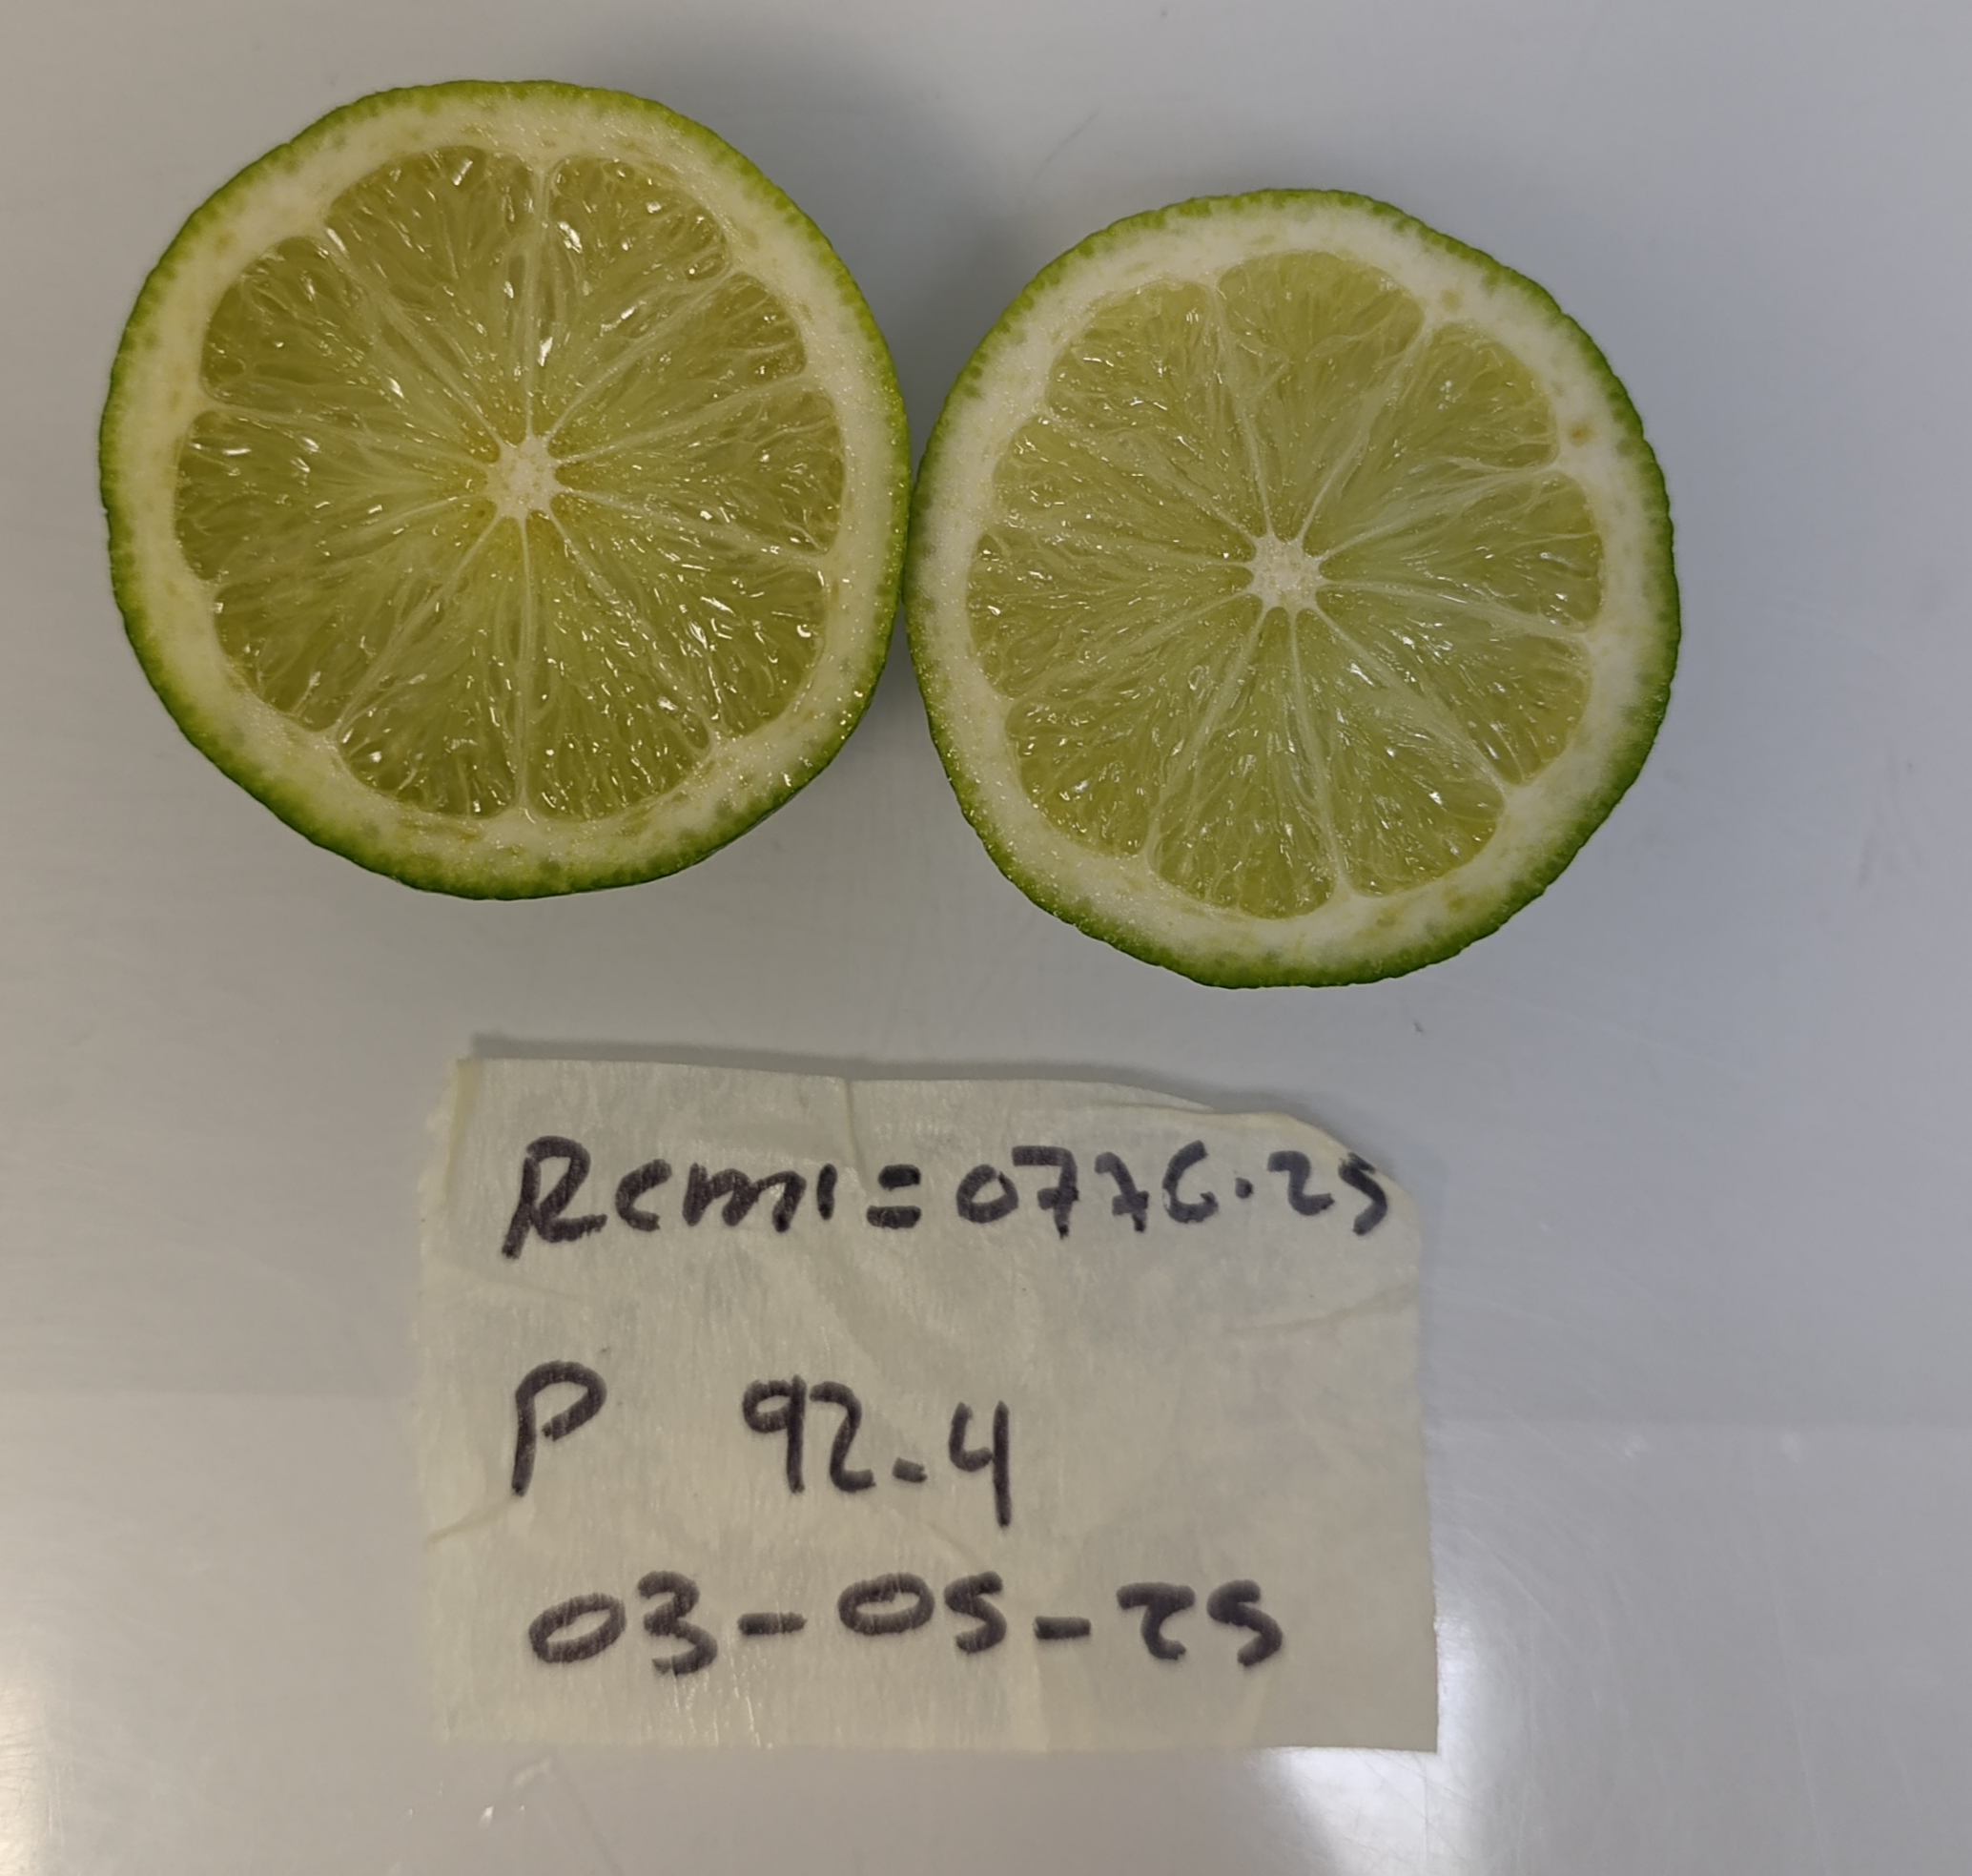 Remi=0776.25
P 92.4
03-05-25